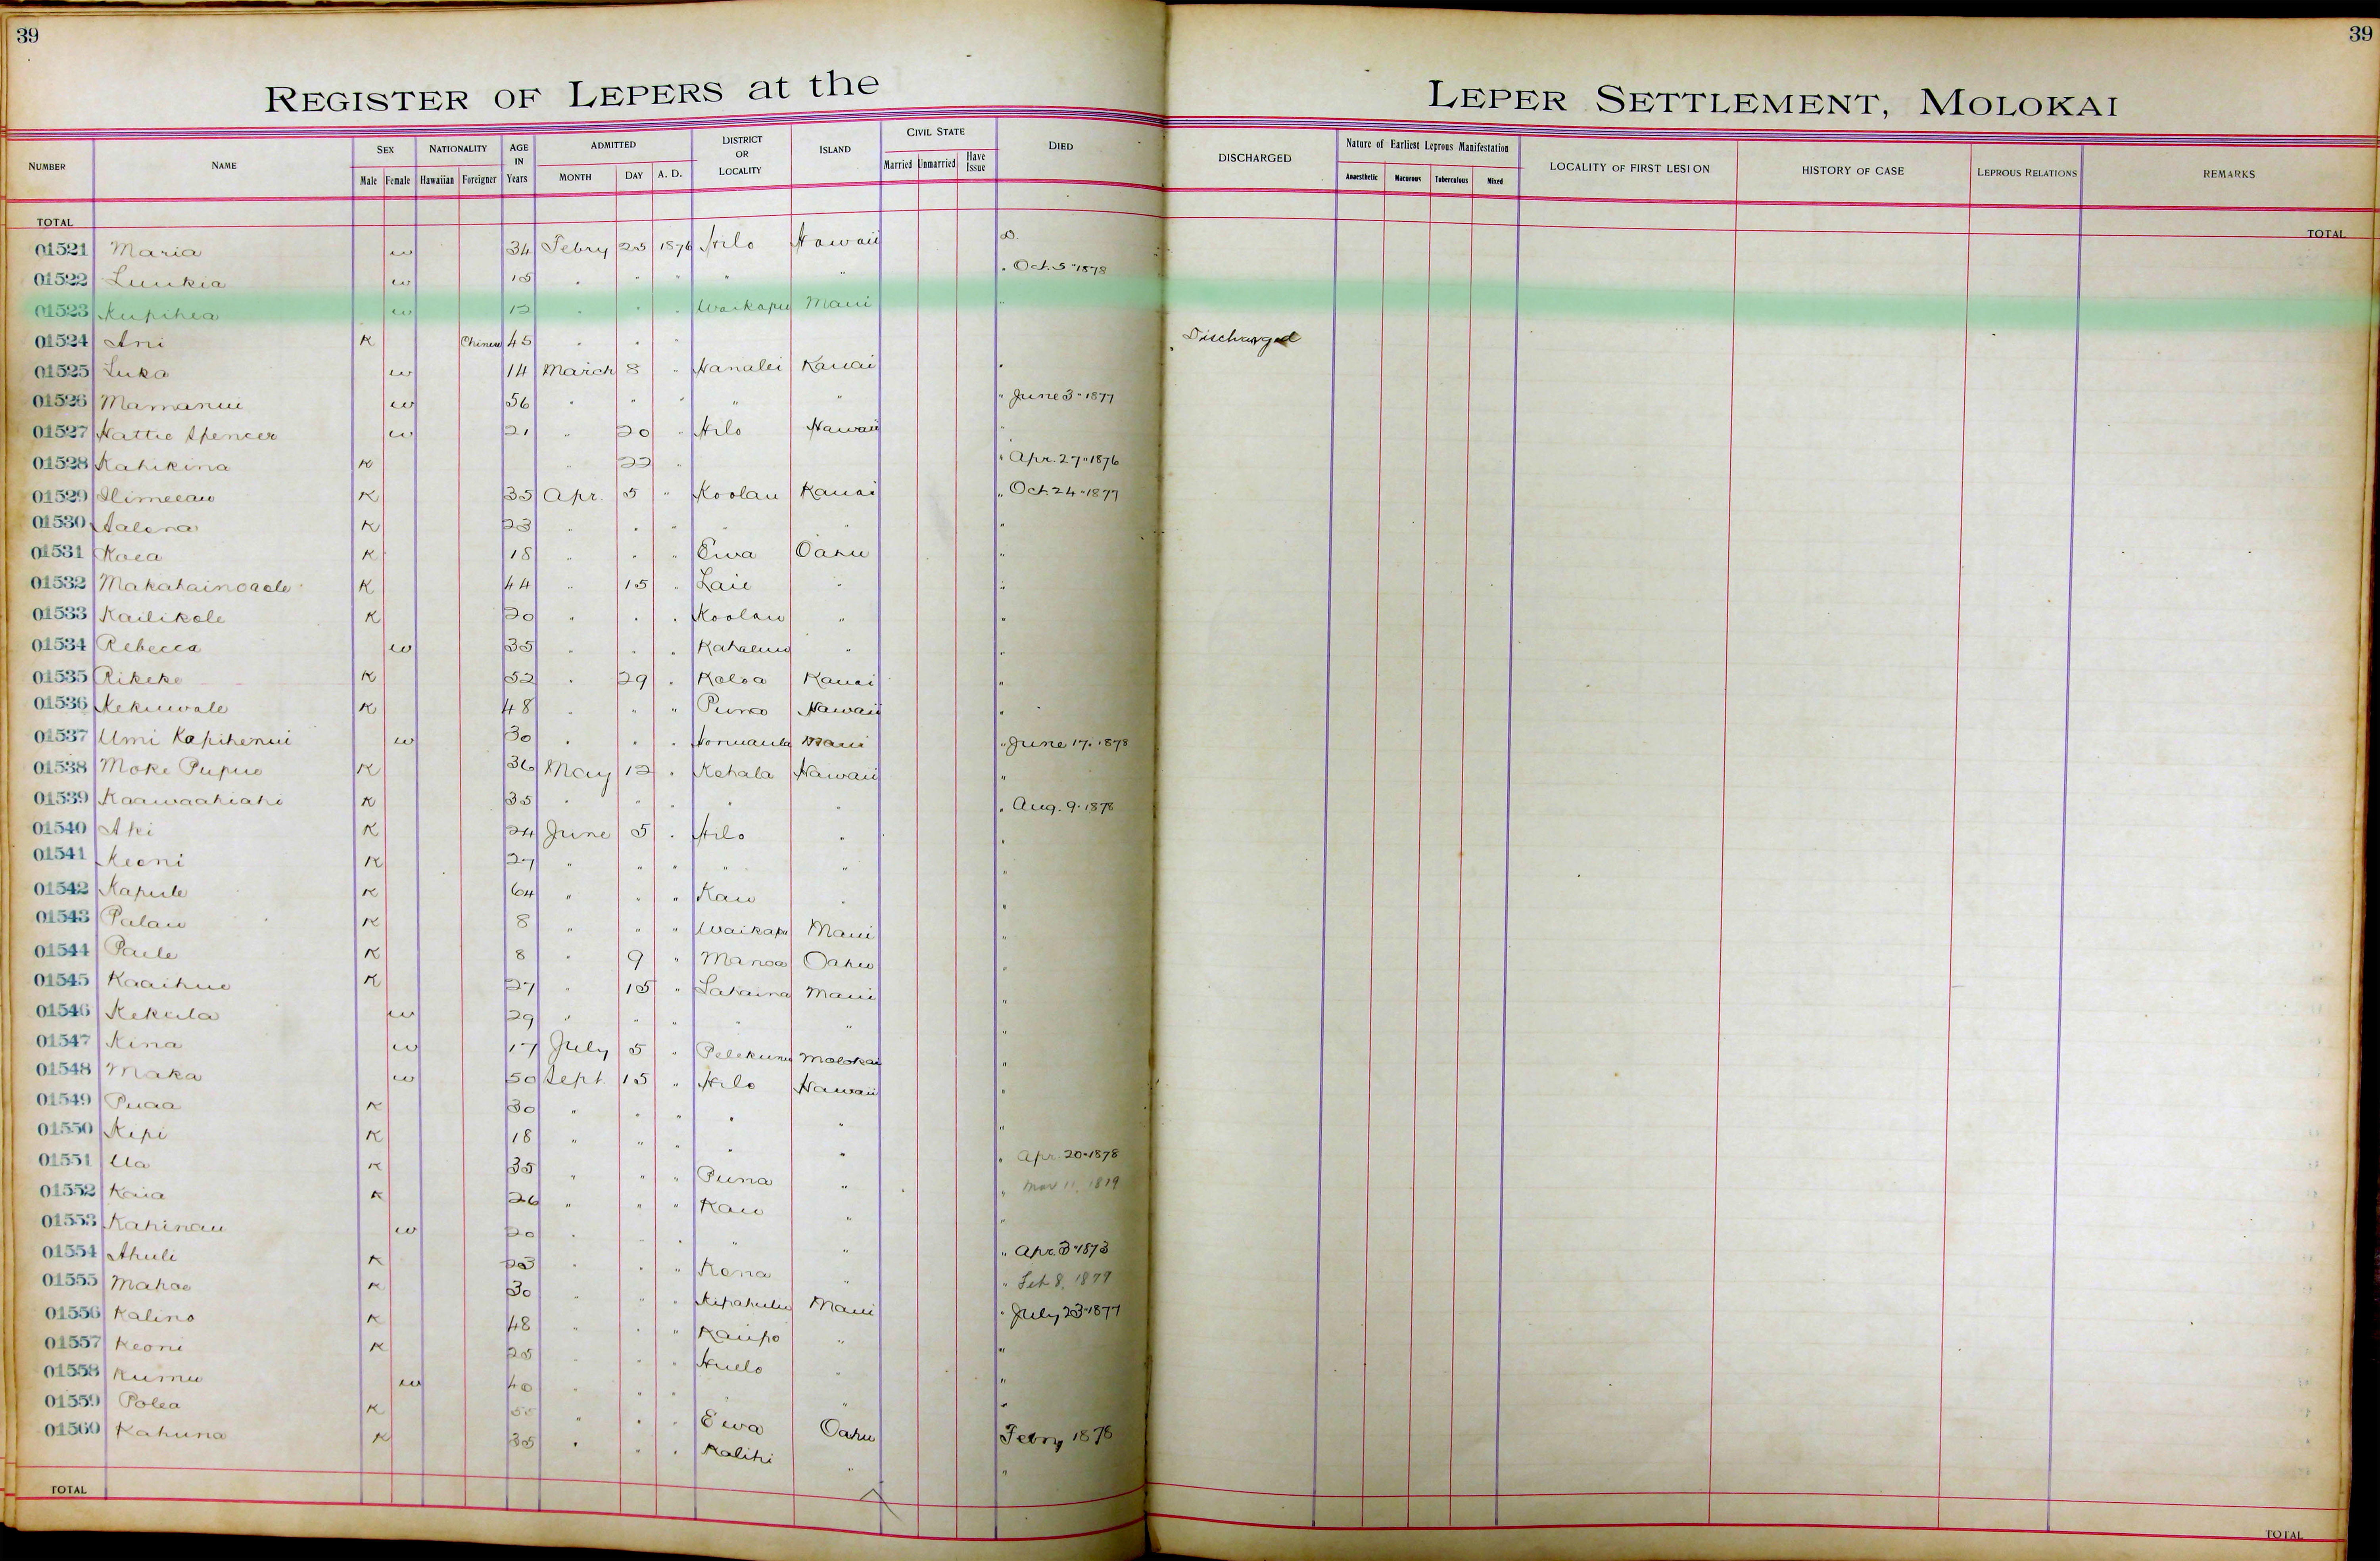 39
39
REGISTER OF LEPERS at the LEPER SETTLEMENT, MOLOKAI
NUMBER NAME SEX NATIONALITY AGE IN Years ADMITTED DISTRICT OR LOCALITY ISLAND CIVIL STATE DIED DISCHARGED Nature of Earliest Leprous Manifestation LOCALITY OF FIRST LESION HISTORY OF CASE LEPROUS RELATIONS REMARKS
Male Female Hawaiian Foreigner MONTH DAY A. D. Married Unmarried Have Issue Anaesthetic Macurous Tuberculous Mixed
TOTAL TOTAL
01521 Maria w 34 Febry 25 1876 Hilo Hawaii D.
01522 Luukia w 15 " " " " " " Oct. 5 " 1878
01523 Kupihea w 12 " " " Waikapu Maui "
01524 Ani K Chinese 45 " " " Discharged
01525 Luka w 14 March 8 " Hanalei Kauai "
01526 Mamanui w 56 " " " " " " June 3 - 1877
01527 Hattie Spencer w 21 " 20 " Hilo Hawaii "
01528 Kahikina K " 22 " " Apr. 27 " 1876
01529 K 35 Apr. 5 " Koolau Kauai " Oct. 24 - 1877
01530 Aalona K 23 " " " " " "
01531 Koea K 18 " " " Ewa Oahu "
01532 Makahainoaole K 44 " 15 " Laie " "
01533 Kailikole K 20 " " " Koolau " "
01534 Rebecca w 35 " " " Kahaluu " "
01535 Rikeke K 52 " 29 " Koloa Kauai "
01536 Kekuwale K 48 " " " Puna Hawaii "
01537 Umi Kapihenui w 30 " " " Honuaula Maui " June 17. 1878
01538 Moke Pupue K 36 May 12 " Kohala Hawaii "
01539 Kaawaahiahi K 35 " " " " " " Aug. 9. 1878
01540 Ahi K 24 June 5 " Hilo " "
01541 Keoni K 27 " " " " " "
01542 Kapule K 64 " " " Kau " "
01543 Palau K 8 " " " Waikapu Maui "
01544 Paele K 8 " 9 " Manoa Oahu "
01545 Kaaihue K 27 " 15 " Lahaina Maui "
01546 Kekula w 29 " " " " " "
01547 Kina w 17 July 5 " Pelekunu Molokai "
01548 Maka w 50 Sept. 15 " Hilo Hawaii "
01549 Puaa K 30 " " " " " "
01550 Kipi K 18 " " " " " " Apr. 20 - 1878
01551 Ua K 35 " " " Puna " " Mar 11, 1819
01552 Kaia K 26 " " " Kau " "
01553 Kahinau w 20 " " " " " " Apr. 3 - 1873
01554 Ahuli K 23 " " " Kona " " Feb 8, 1879
01555 Mahoe K 30 " " " Kipahulu Maui " July 23 - 1877
01556 Kalino K 48 " " " Kaupo " "
01557 Keoni K 25 " " " Huelo " "
01558 Kumu w 40 " " " " "
01559 Polea K 55 " " " Ewa Oahu Febry 1878
01560 Kahuna K 35 " " " Kalihi " "
TOTAL TOTAL